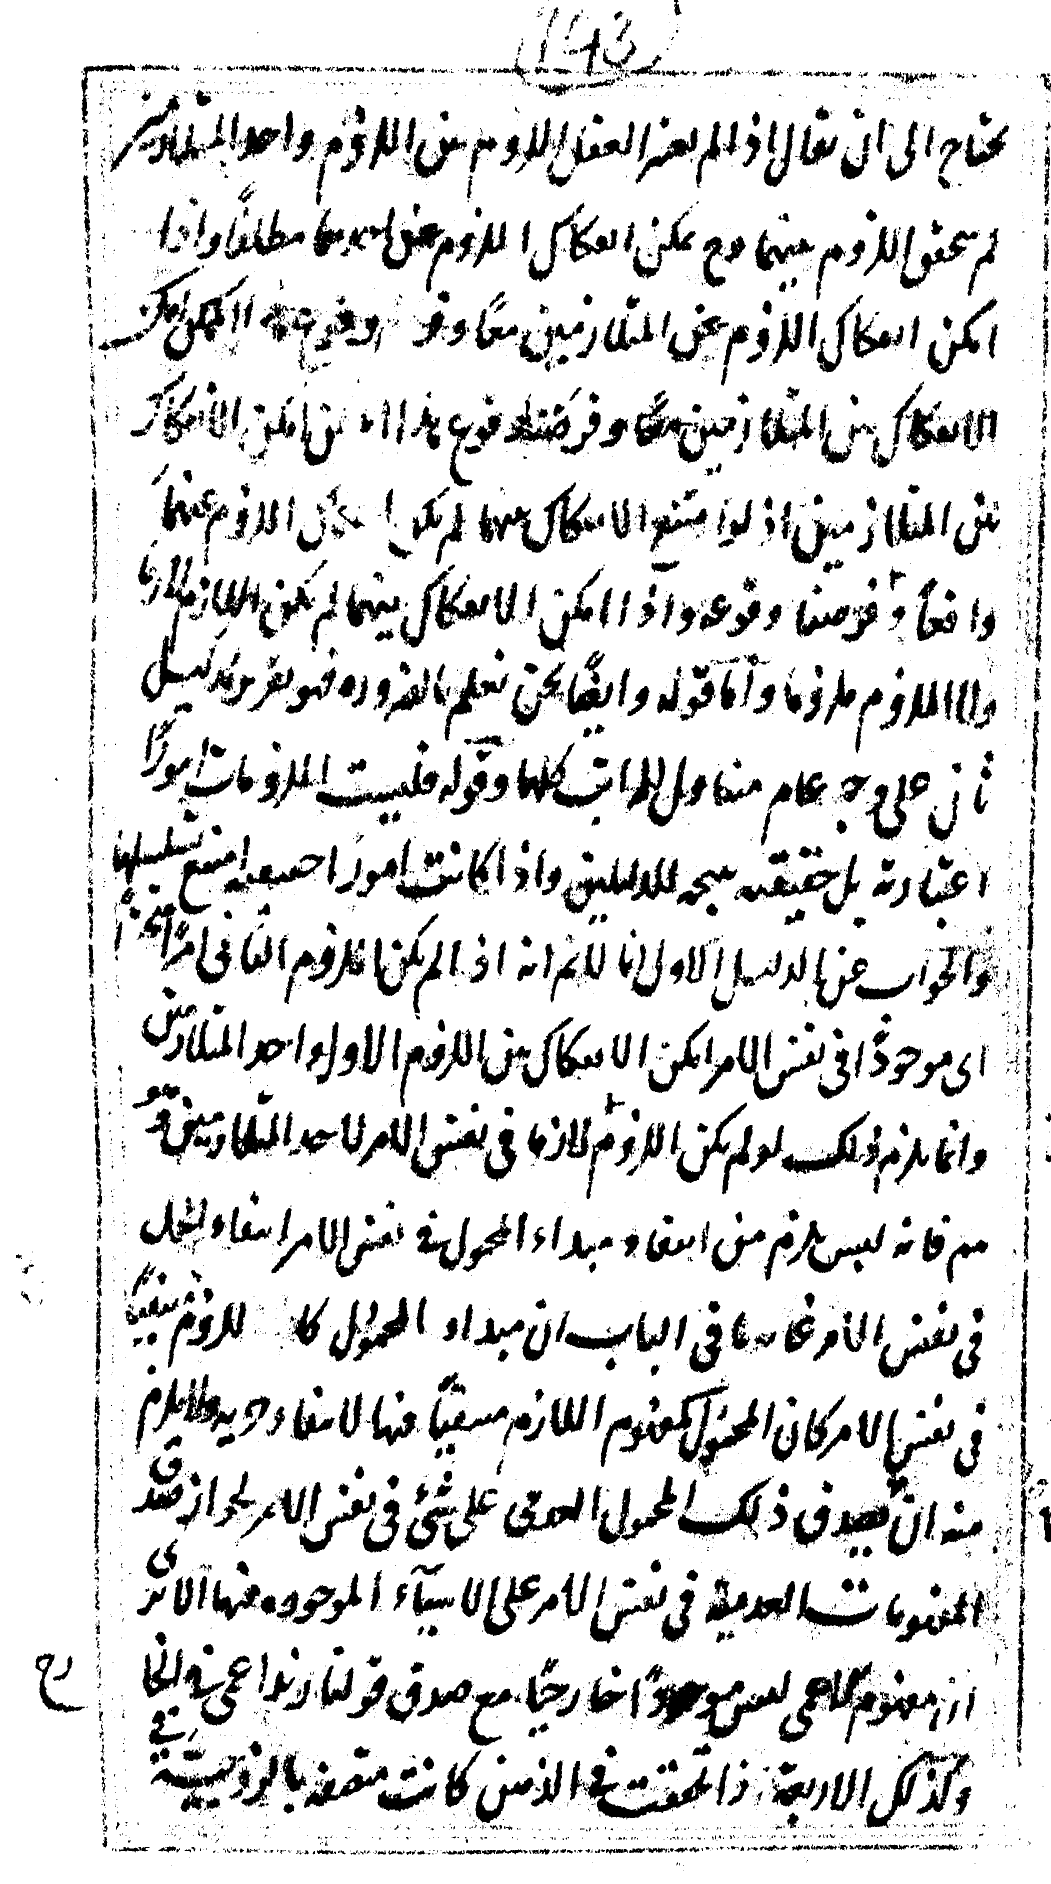 143
يحتاج الى ان يقال اذا لم يعتبر العقل اللزوم بين اللزوم واحد المتلازمين
لم يتحقق اللزوم بينهما وح يمكن انفكاك اللزوم عن احدهما مطلقا واذا
امكن انفكاك اللزوم عن المتلازمين معا وقد وقوع امكن
الانفكاك بين المتلازمين معا وفرضنا وقوع هذا امكن الانفكاك
بين المتلازمين اذ لو امتنع الانفكاك بينهما لم يكن اللزوم عنهما
واقعا وقد فرضنا وقوعه واذا امكن الانفكاك بينهما لم يكن اللازم لازما
ولا الملزوم ملزوما واما قوله وايضا نحن نعلم بالضرورة فهو تقرير دليل
ثان على وجه عام متناول للمراتب كلها وقوله فليست الملزومات امورا
اعتبارية بل حقيقية نتيجة للدليلين واذا كانت امورا حقيقية امتنع تسلسلها
والجواب عن الدليل الاول انا لا نم انه اذا لم يكن اللزوم الثانى امرا متحققا
اى موجودا فى نفس الامر امكن الانفكاك بين اللزوم الاول واحد المتلازمين
وانما يلزم ذلك لو لم يكن اللزوم لازما فى نفس الامر لاحد المتلازمين وهو
مم فانه ليس يلزم من انتفاء مبداء المحمول فى نفس الامر انتفاء الحمل
فى نفس الامر غاية ما فى الباب ان مبداء المحمول كاللزوم منتفيا
فى نفس الامر كان المحمول كمفهوم اللازم منتفيا فيها لانتفاء جزئه ولا يلزم
منه ان لا يصدق ذلك المحمول العدمى على شئ فى نفس الامر لجواز صدق
المفهومات العدمية فى نفس الامر على الاشياء الموجودة فيها الا ترى
ان مفهوم الاعمى ليس موجودا خارجيا مع صدق قولنا زيد اعمى فى الخارج
وكذلك الاربعة اذا تحققت فى الذهن كانت متصفة بالزوجية فى